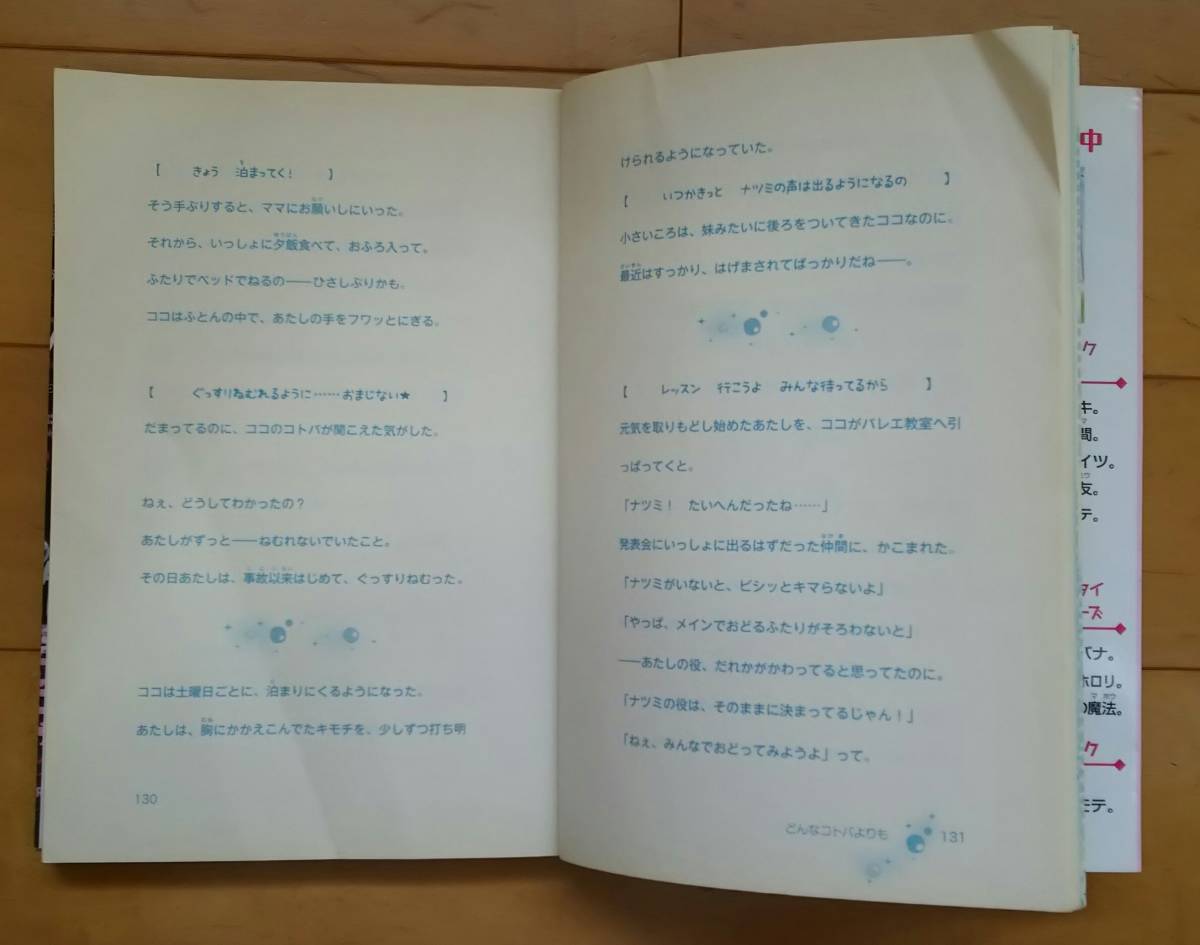 【　きょう　泊まってく！　】
そう手ぶりすると、ママにお願いしにいった。
それから、いっしょに夕飯食べて、おふろ入って。
ふたりでベッドでねるの――ひさしぶりかも。
ココはふとんの中で、あたしの手をフワッとにぎる。
【　ぐっすりねむれるように……おまじない★　】
だまってるのに、ココのコトバが聞こえた気がした。
ねぇ、どうしてわかったの？
あたしがずっと――ねむれないでいたこと。
その日あたしは、事故以来はじめて、ぐっすりねむった。
ココは土曜日ごとに、泊まりにくるようになった。
あたしは、胸にかかえこんでたキモチを、少しずつ打ち明
130
けられるようになっていた。
【　いつかきっと　ナツミの声は出るようになるの　】
小さいころは、妹みたいに後ろをついてきたココなのに。
最近はすっかり、はげまされてばっかりだね――。
【　レッスン　行こうよ　みんな待ってるから　】
元気を取りもどし始めたあたしを、ココがバレエ教室へ引
っぱってくと。
「ナツミ！　たいへんだったね……」
発表会にいっしょに出るはずだった仲間に、かこまれた。
「ナツミがいないと、ビシッとキマらないよ」
「やっぱ、メインでおどるふたりがそろわないと」
――あたしの役、だれかがかわってると思ってたのに。
「ナツミの役は、そのままに決まってるじゃん！」
「ねぇ、みんなでおどってみようよ」って。
どんなコトバよりも
131
中
ク
キ。
間。
イツ。
友。
テ。
タイ
ーズ
バナ。
ホロリ。
の魔法。
ク
モテ。